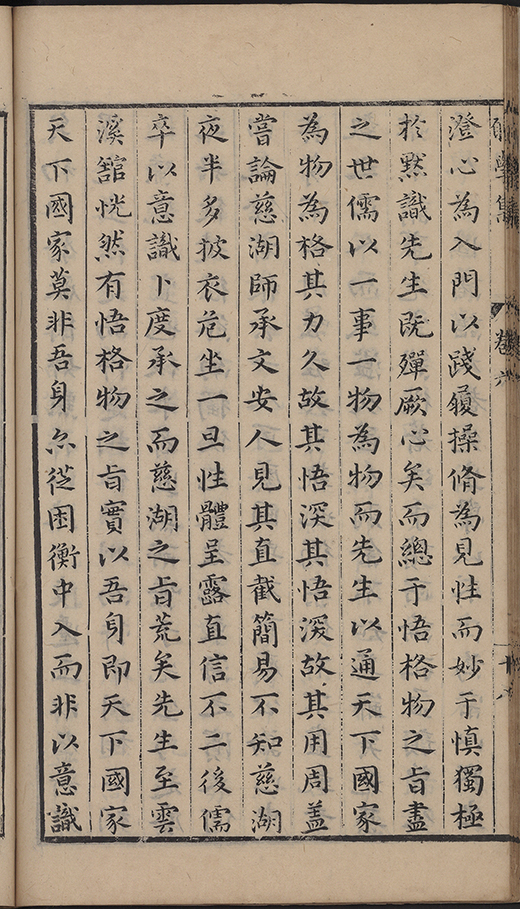 卷六
澄心為入門以踐履操脩為見性而妙于慎獨極
於默識先生既殫厥心矣而總于悟格物之旨盡
之世儒以一事一物為物而先生以通天下國家
為物為格其力久故其悟深其悟深故其用周蓋
嘗論慈湖師承文安人見其直截簡易不知慈湖
夜半多披衣危坐一旦性體呈露直信不二後儒
卒以意識卜度承之而慈湖之旨荒矣先生至雲
溪舘恍然有悟格物之旨實以吾身即天下國家
天下國家莫非吾身尒從困衡中入而非以意識